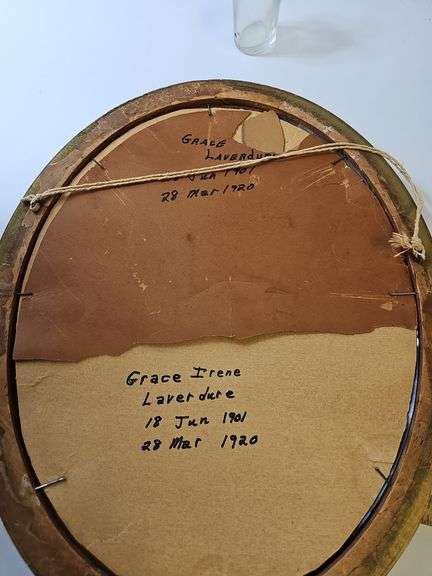 GRACE
LAVERDURE
18 Jun 1901
28 Mar 1920
Grace Irene
Laverdure
18 Jun 1901
28 Mar 1920